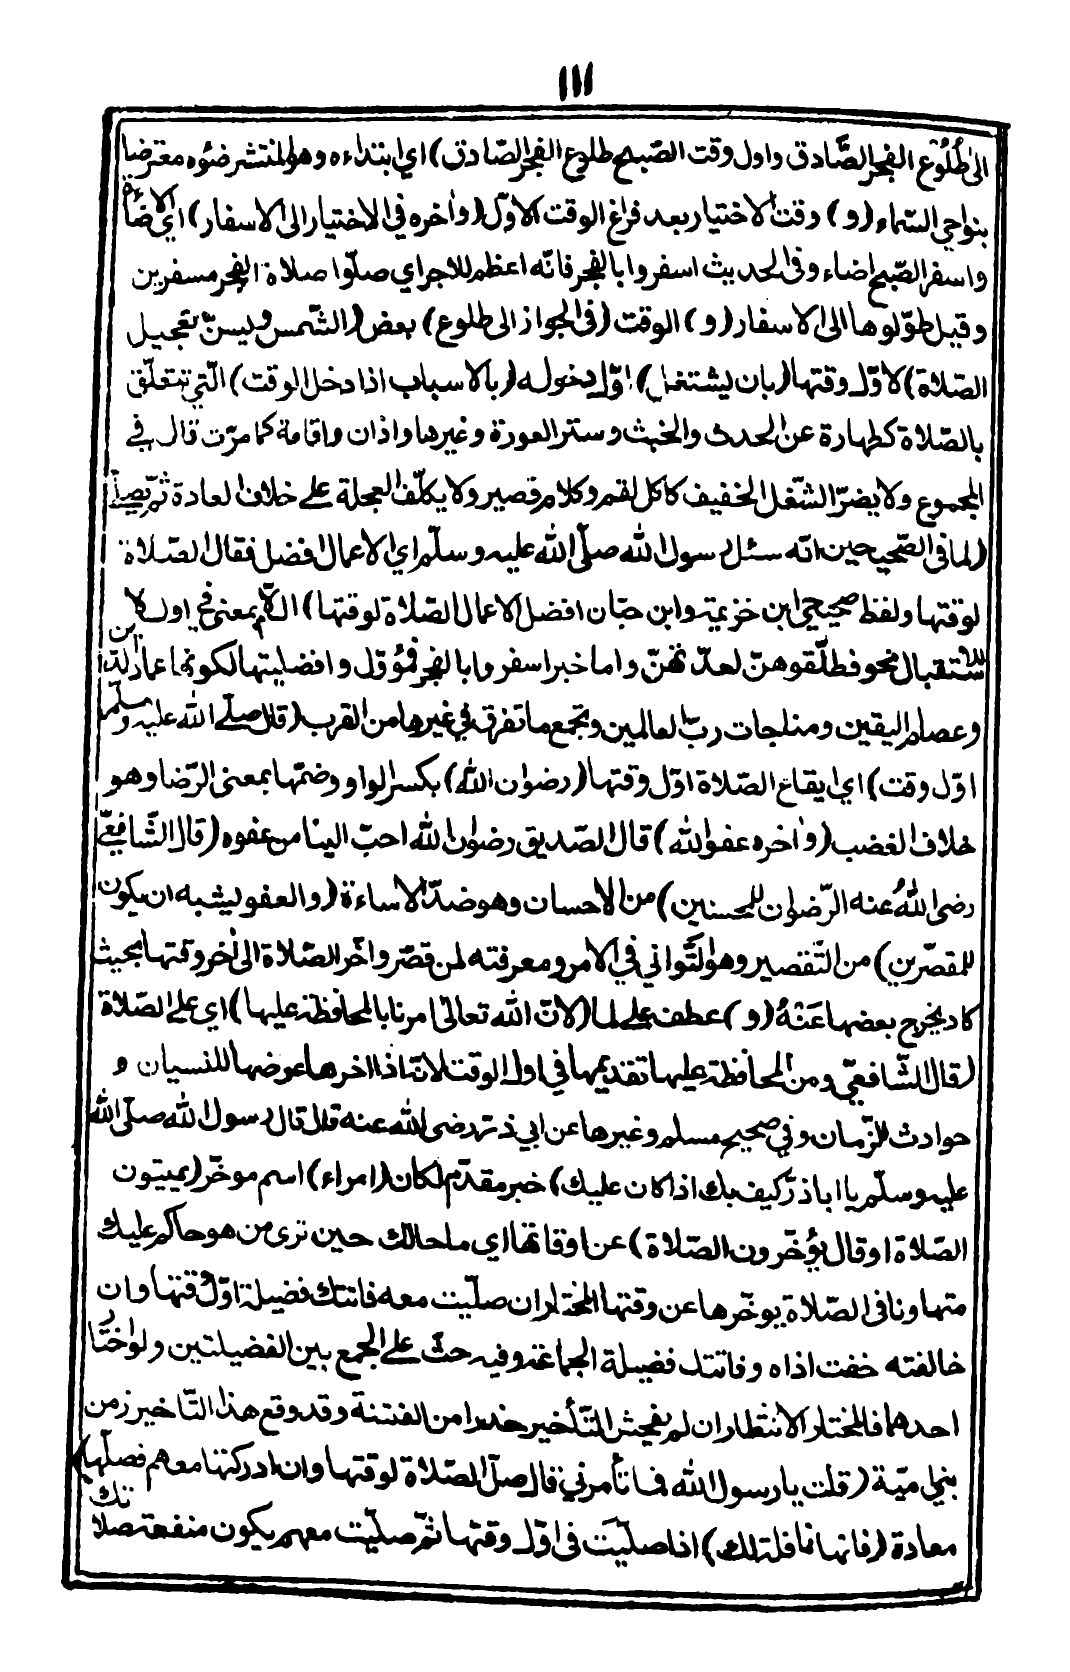 ١١١
الى طُلُوع الفجر الصَّادق واول وقت الصّبح طلوع الفجر الصّادق) اي ابتداءه وهو المنتشر ضوءه معترضا
بنواحي السّماء (و) وقت الاختيار بعد فراغ الوقت الاوّل (واٰخره في الاختيار الى الاسفار) اي الاضاءة
واسفر الصّبح اضاء وفى الحديث اسفروا بالفجر فانّه اعظم للاجر اي صلّوا صلاة الفجر مسفرين
وقيل طوّلوها الى الاسفار (و) الوقت (فى الجواز الى طلوع) بعض (الشّمس وليسنّ تعجيل
الصّلاة) لاوّل وقتها (بان يشتغل) اوّل دخوله (بالاسباب اذا دخل الوقت) الّتي تتعلّق
بالصّلاة كطهارة عن الحدث والخبث وستر العورة وغيرها واذان واقامة كما مرّت قال في
المجموع ولا يضرّ الشّغل الخفيف كاكل لقم وكلام قصير ولا يكلّف العجلة على خلاف العادة ثمّ يصلّ
(لما فى الصّحيحين انّه سئل رسول الله صلّى الله عليه وسلّم اي الاعمال افضل فقال الصّلاة
لوقتها ولفظ صحيحي ابن خزيمة وابن حبّان افضل الاعمال الصّلاة لوقتها) اللّام بمعنى في اول لا
للاستقبال نحو فطلّقوهنّ لعدّتهنّ واما خبر اسفروا بالفجر فمؤوّل وافضليتها لكونها عماد الدين
وعصام اليقين ومناجات ربّ العالمين وتجمع ما تفرق في غيرها من القرب (قال صلّى الله عليه وسلّم
اوّل وقت) اي ايقاع الصّلاة اوّل وقتها (رضوان الله) بكسر الواو وضمّها بمعنى الرّضا وهو
خلاف الغضب (واٰخره عفو الله) قال الصديق رضوان الله احبّ الينا من عفوه (قال الشّافعيّ
رضى اللهُ عنه الرّضوان للمحسنين) من الاحسان وهو ضدّ الاساءة (والعفو يشبه ان يكون
للمقصّرين) من التّقصير وهو التّواني في الامر ومعرفته لمن قصّر واخّر الصّلاة الى اٰخر وقتها بحيث
كاد يخرج بعضها عَنْهُ (و) عطف على لما (لانّ الله تعالى امرنا بالمحافظة عليها) اي على الصّلاة
(قال الشّافعيّ ومن المحافظة عليها تقديمها في اول الوقت لانّه اذا اخرها عرضها للنسيان و
حوادث الزّمان وفي صحيح مسلم وغيرها عن ابي ذرّ رضى الله عنه قال قال رسول الله صلّى الله
عليه وسلّم يا ابا ذرّ كيف بك اذا كان عليك) خبر مقدّم لكان (امراء) اسم موخّر (يميتون
الصّلاة او قال يؤخّرون الصّلاة) عن اوقاتها اي ما حالك حين ترى من هو حاكم عليك
متهاونا فى الصّلاة يوخّرها عن وقتها المختار ان صلّيت معه فاتتك فضيلة اوّل وقتها وان
خالفته خفت اذاه وفاتتك فضيلة الجماعة وفيه حثّ على الجمع بين الفضيلتين ولو اختار
احدهما فالمختار الانتظار ان لم يفحش التّأخير حذرا من الفتنة وقد وقع هذا التّاخير زمن
بني اميّة (قلت يا رسول الله فما تأمرني قال صلّ الصّلاة لوقتها وان ادركتها معهم فصلّها)
معادة (فانها نافلة لك) اذا صلّيت فى اوّل وقتها ثمّ صلّيت معهم يكون منفعة صلاتك